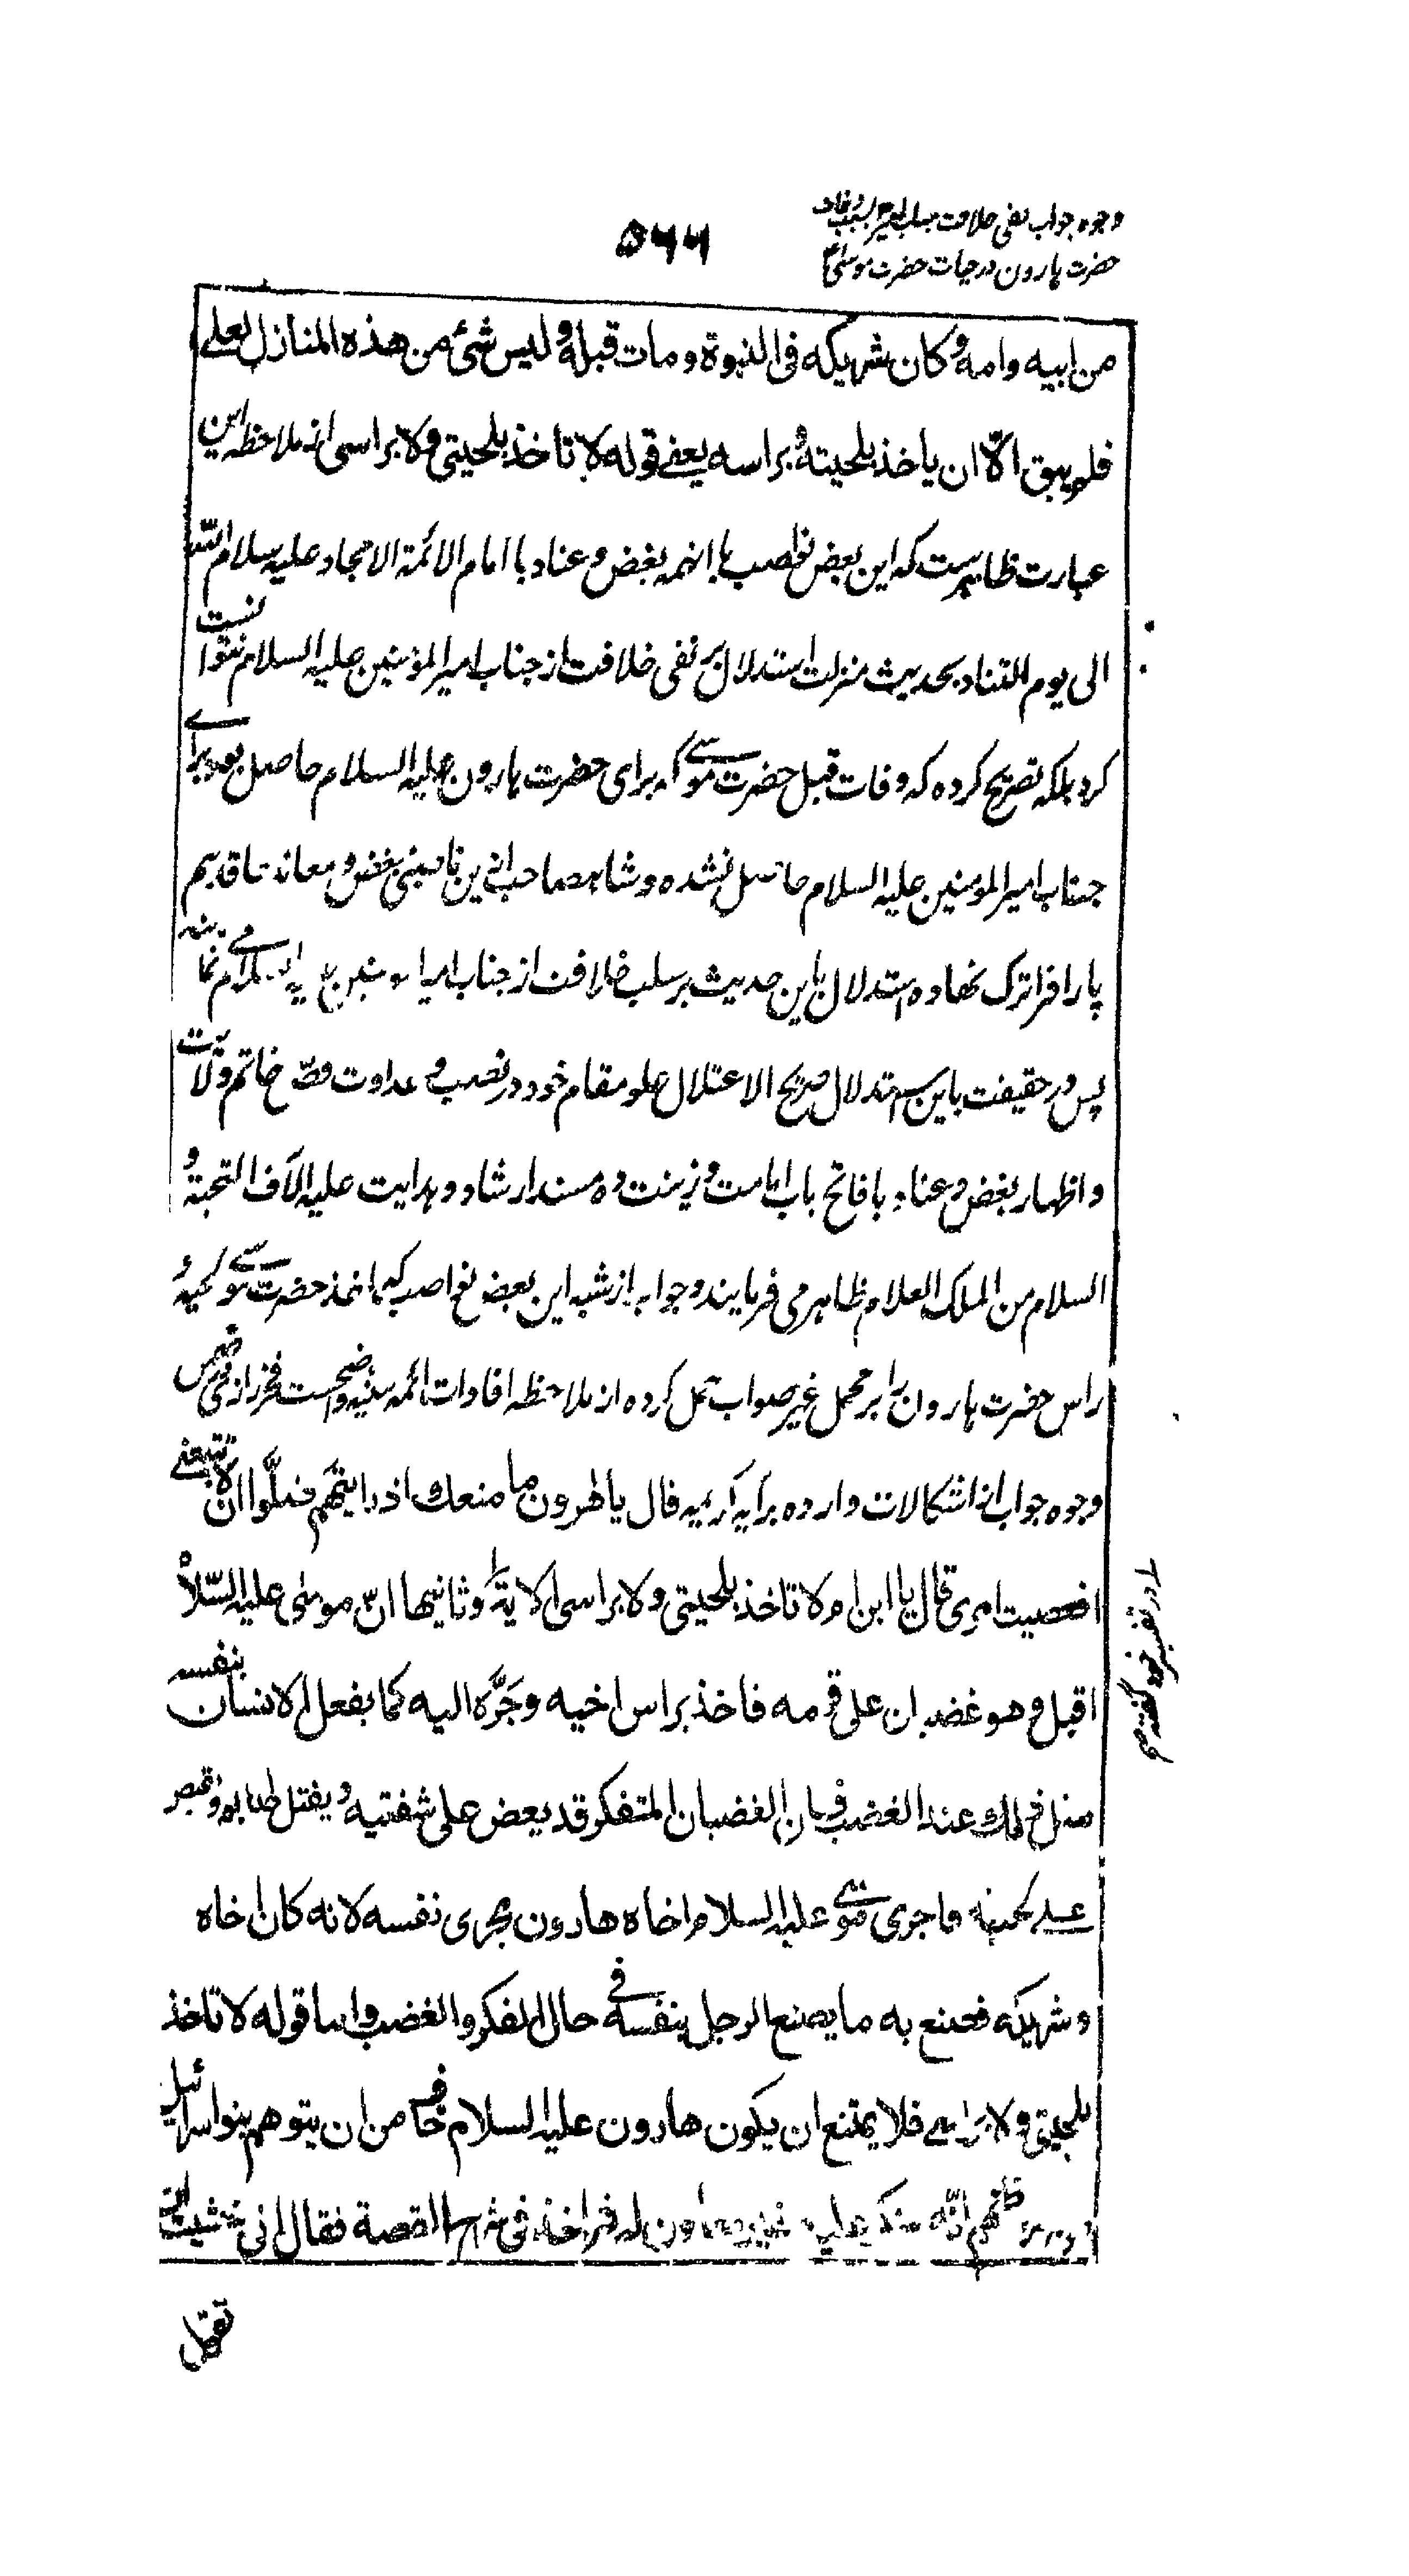 وجوه جواب نفی خلافت بسبب وفات
۵۴۴
حضرت هارون در حیات حضرت موسیٰ
من ابیه وامه وکان شریکه فی النبوة ومات قبله ولیس شئ من هذه المنازل لعلے
فلم یبق الّا ان یاخذ بلحیته وبراسه یعنے قوله لا تاخذ بلحیتی ولا براسی از ملاحظه این
عبارت ظاهرست که این بعض نواصب با اینهمه بغض و عناد با امام الائمة الامجاد علیه سلام اللّه
الی یوم التناد بحدیث منزلت استدلال بر نفی خلافت از جناب امیر المؤمنین علیه السلام نتوانست
کرد بلکه تصریح کرده که وفات قبل حضرت موسے که برای حضرت هارون علیه السلام حاصل بود برای
جناب امیر المومنین علیه السلام حاصل نشده و شاه صاحب ازین ناصبی بغض و معاند قدیم
پا را فراترک نهاده استدلال باین حدیث بر سلب خلافت از جناب امیر المومنین علیه السلام می نمایند
پس در حقیقت باین استدلال صریح الاعتلال علو مقام خود در نصب و عداوت خاتم ولایت
و اظهار بغض و عناد با فاتح باب امامت و زینت ده مسند ارشاد و هدایت علیه آلاف التحیة و
السلام من الملک العلام ظاهر می فرمایند و جواب از شبه این بعض نواصب که اخذ حضرت موسے لحیه و
راس حضرت هارون را بر محمل غیر صواب حمل کرده از ملاحظه افادات ائمه سنیه واضحست فخر رازی در ضمن
وجوه جواب از اشکالات وارده بر آیه کریمه قال یا هٰرون ما منعك اذ رایتهم ضلّوا ان لا تتبعنے
افعصیت امری قال یا ابن ام لا تاخذ بلحیتی ولا براسی الایة وثانیها انّ موسٰی علیه السّلام
اقبل وهو غضبان علی قومه فاخذ براس اخیه وجَرَّه الیه کما یفعل الانسان بنفسه
مثل ذلك عند الغضب فان الغضبان المتفکر قد یعض علی شفتیه ویفتل اصابعه ویقبض
علے لحیته فاجری موسے علیه السلام اخاه هارون مجری نفسه لانه کان اخاه
وشریکه فصنع به ما یصنع الرجل بنفسه فی حال الفکر والغضب واما قوله لا تاخذ
بلحیتی ولا براسے فلا یمتنع ان یکون هارون علیه السلام خاف من ان یتوهم بنو اسرائیل
انه منکر علیه غیر معاون له ثم اخذ فی شرح القصة فقال انی خشیت ان
در تفسیر خود گفته
تقول